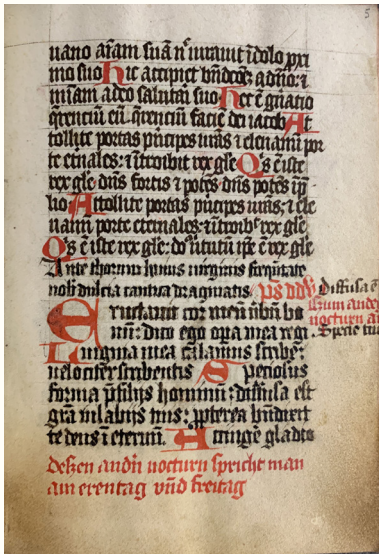 5
uano aīam suā nc̄ iurauit ī dolo pxi
mo suo Hic accipiet bn̄dcōꝫ a dn̄o: ⁊
mīam a deo salutāi suo Hec ē gn̄atio
qrenciū eū: qrenciū faciē dei iacob At
tollite portas pncipes urās ⁊ eleuamī por
te etnales: ⁊ ītroibit rex gle Qs ē iste
rex gle dn̄s fortis ⁊ potēs dn̄s potēs ī p̄
lio Attollite portas pncipes urās: ⁊ ele
uamī porte eternales: ⁊ ītroibit rex gle
Qs ē iste rex gle: dn̄s uirtutū ip̄e ē rex gle
Ante thorum huius virginis frequentate
nobis dulcia cantica dragmatis Ps dd
Eructauit cor meū ūbū bo
num: dico ego opa mea regi
Lingua mea calamus scribe:
uelociter scribentis Speciosus
forma p̄ filijs hominū: diffusa est
grā in labijs tuis: ppterea bn̄dixit
te deus ī eternū. Accingere gladio
deßen andn̄ nocturn spricht man
am erentag vnd freitag
Diffusa ē
zum anden
nocturn an
Specie tua